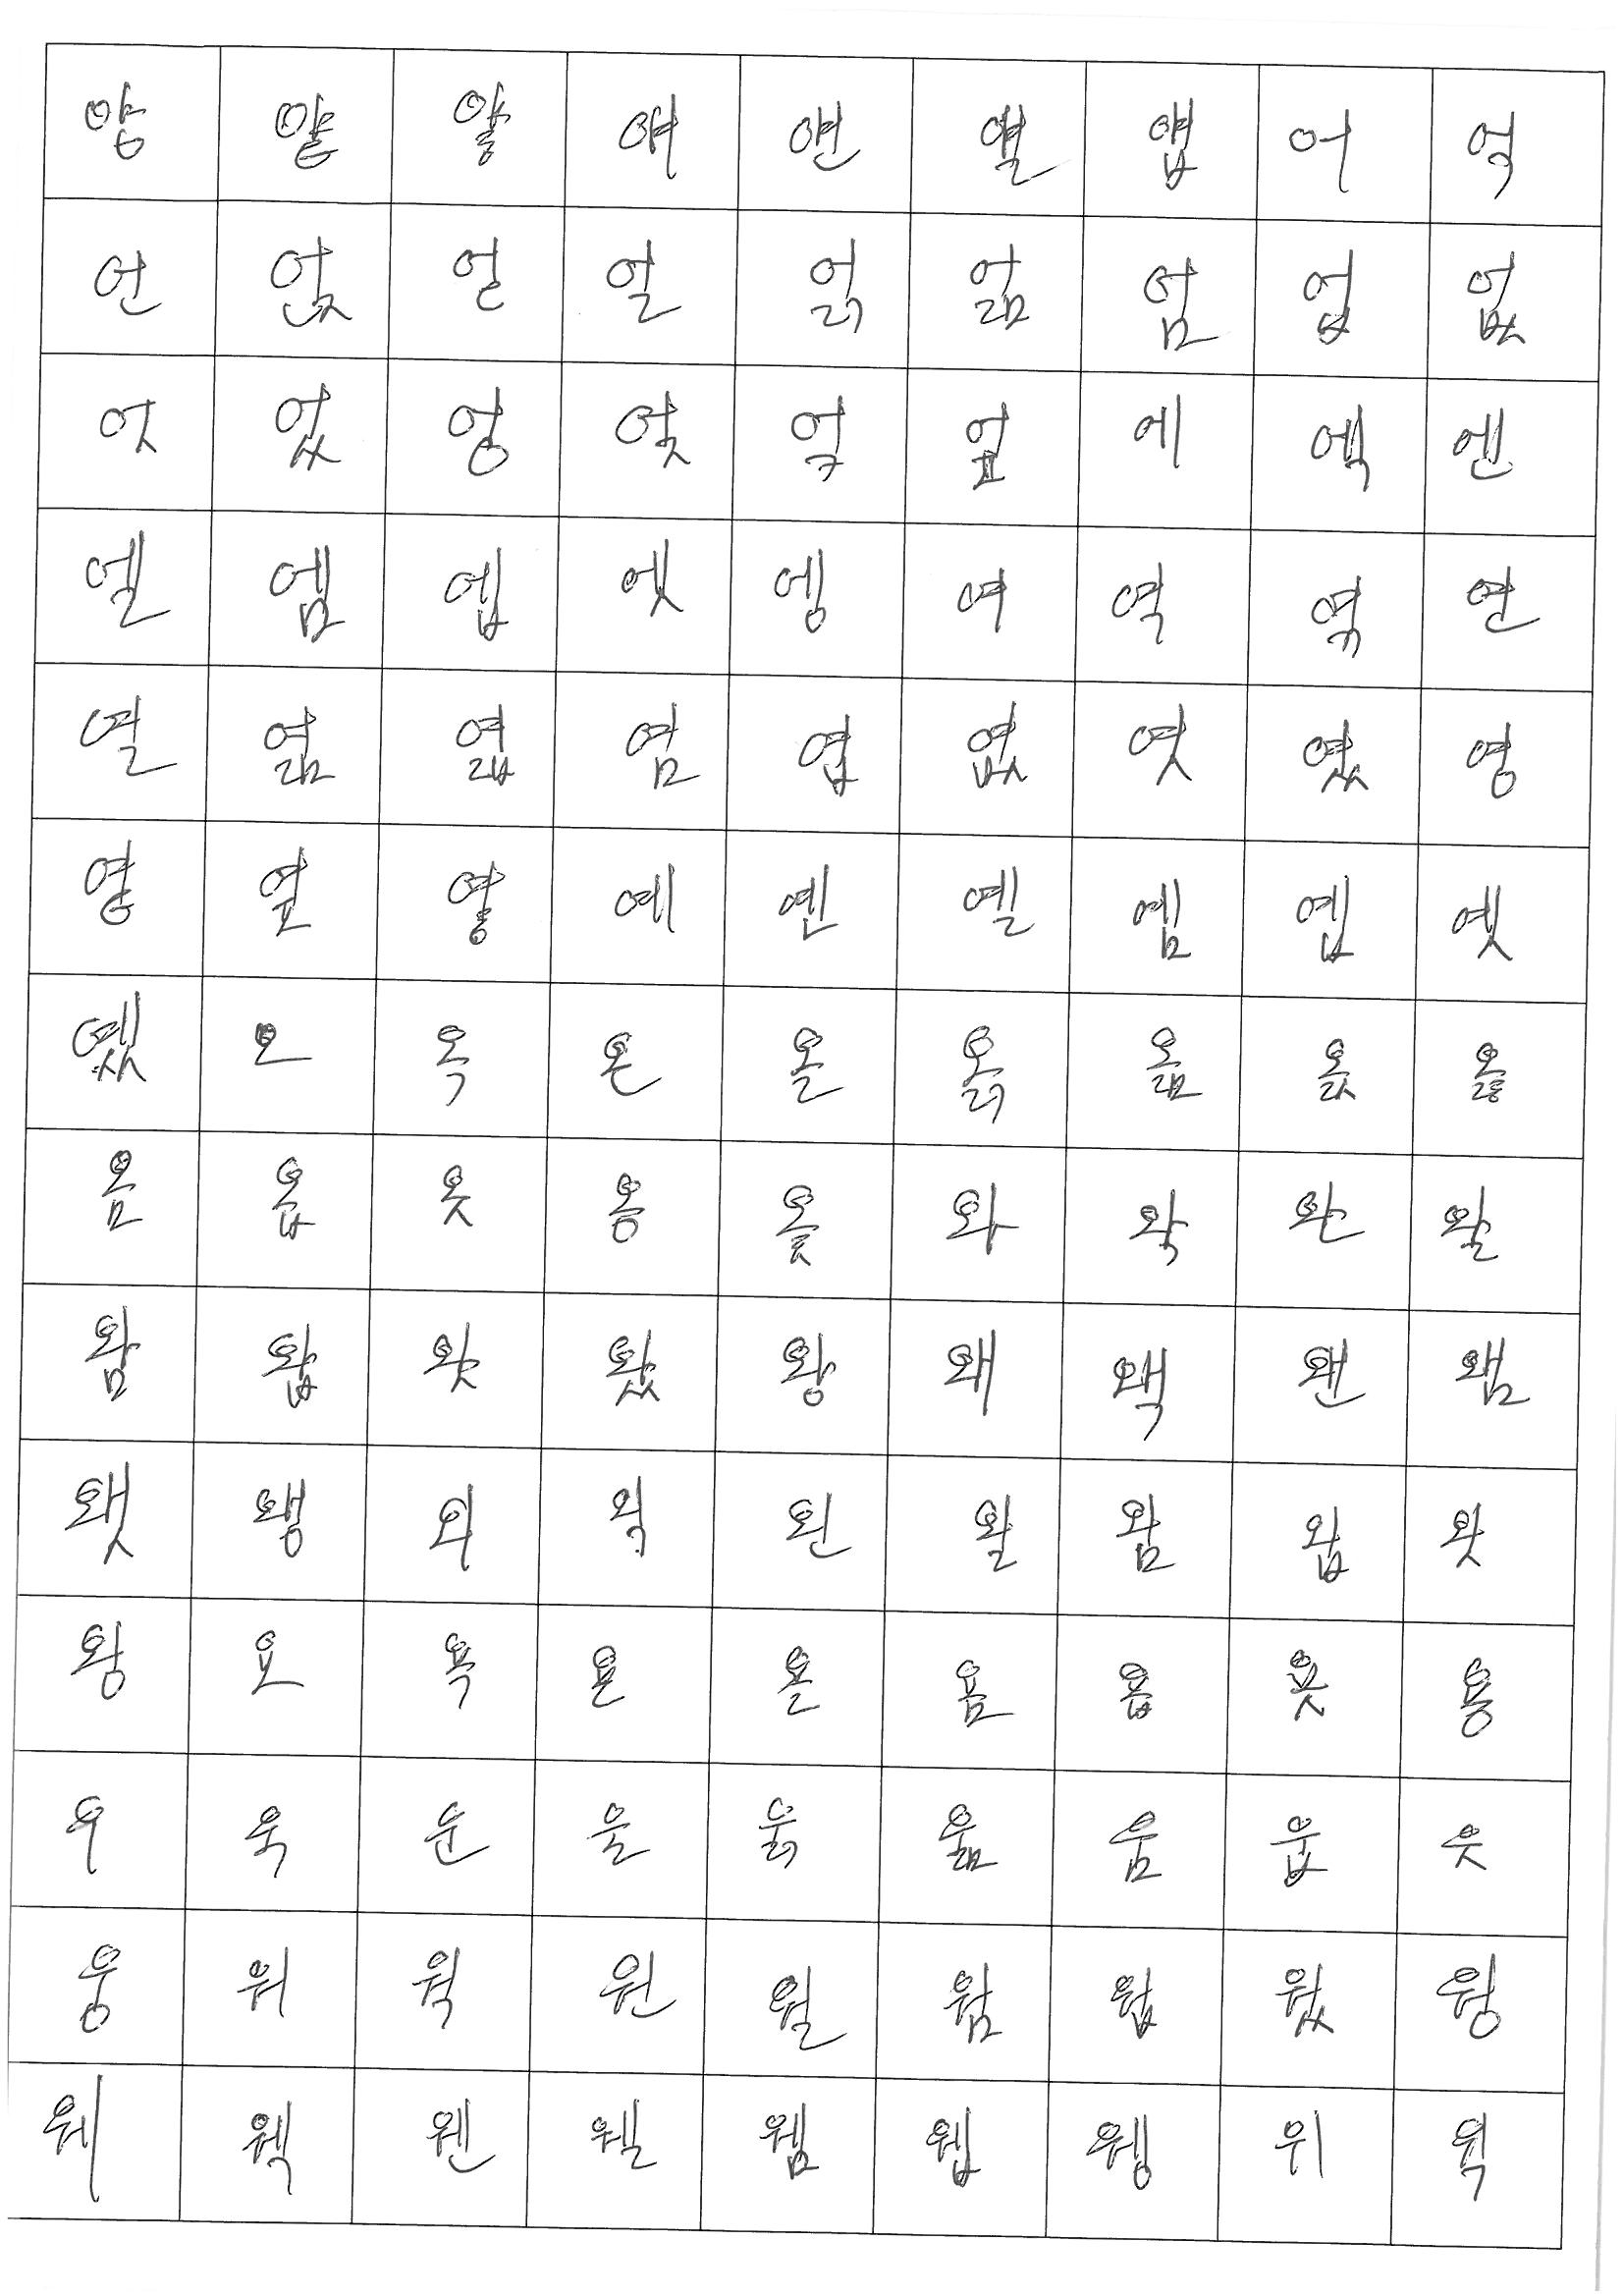 양 얕 얗 얘 얜 얠 얩 어 억
언 얹 얻 얼 얽 얾 엄 업 없
엇 었 엉 엊 엌 엎 에 엑 엔
엘 엠 엡 엣 엥 여 역 엮 연
열 엶 엷 염 엽 엾 엿 였 영
옅 옆 옇 예 옌 옐 옘 옙 옛
옜 오 옥 온 올 옭 옮 옰 옳
옴 옵 옷 옹 옻 와 왁 완 왈
왐 왑 왓 왔 왕 왜 왝 왠 왬
왯 왱 외 왹 왼 욀 욈 욉 욋
욍 요 욕 욘 욜 욤 욥 욧 용
우 욱 운 울 욹 욺 움 웁 웃
웅 워 웍 원 월 웜 웝 웠 웡
웨 웩 웬 웰 웸 웹 웽 위 윅